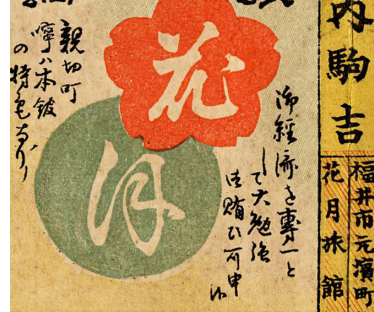 内駒吉
福井市元濱町
花月旅館
花
月
御経済を専一と
して大勉強
仕賄ひ可申
候
親切町
寧ハ本舘
の特色なり